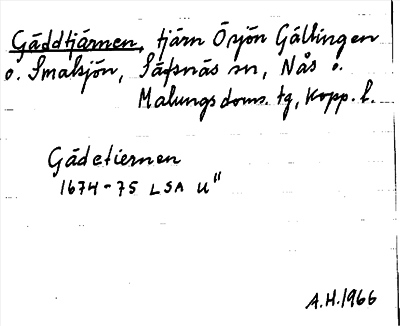 Gäddtjärnen, tjärn Ösjön Gällingen
o. Smalsjön, Säfsnäs sn, Nås o.
Malungs doms. tg, Kopp. l.
Gädetiernen
1674-75 LSA U"
A.H.1966